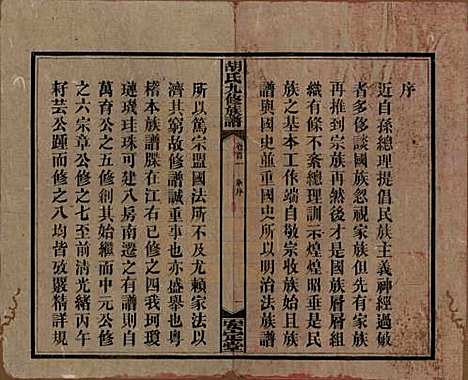 序
近自孫總理提倡民族主義神經過敏
者多侈談國族忽視家族但先有家族
再推到宗族然後才是國族層層組
織有條不紊總理訓示煌煌昭垂是民
族之基本工作端自敬宗收族始且族
譜與國史所以明治法族譜
胡氏九修族譜
卷首
序
安定堂
所以篤宗盟國法所不及尤賴家法以
濟其窮故修譜誠重事也亦盛舉也粵
稽本族譜牒在江右已修四我珂瓊
璉璣珪珠可建八房南遷之有譜則自
萬育公之五修創其始中間一元公修
之六宗章公修之七至前清光緒丙午
耔芸公踵而修之八均皆攷嚴精詳規